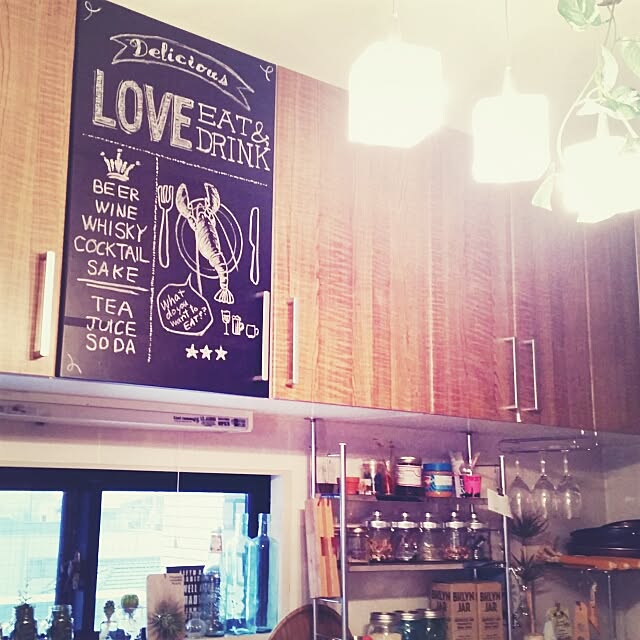 Delicious
LOVE EAT &
DRINK
BEER
WINE
WHISKY
COCKTAIL
SAKE
TEA
JUICE
SODA
What
do you
want to
EAT??